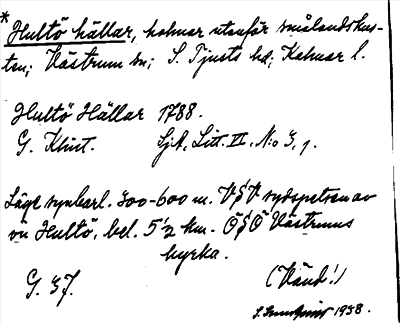 * Hultö hällar, holmar utanför smålandskus-
ten; Västrum sn; S. Tjusts hd; Kalmar l.
Hultö Hällar 1788.
G. Klint. Sjk. Litt. VI. N:o 3, 1.
Läge synbarl. 300-600 m. V§V sydspetsen av
ön Hultö, bel. 5 1/2 km. Ö§Ö Västrums
kyrka.
G. 37. (Vänd!)
1938.